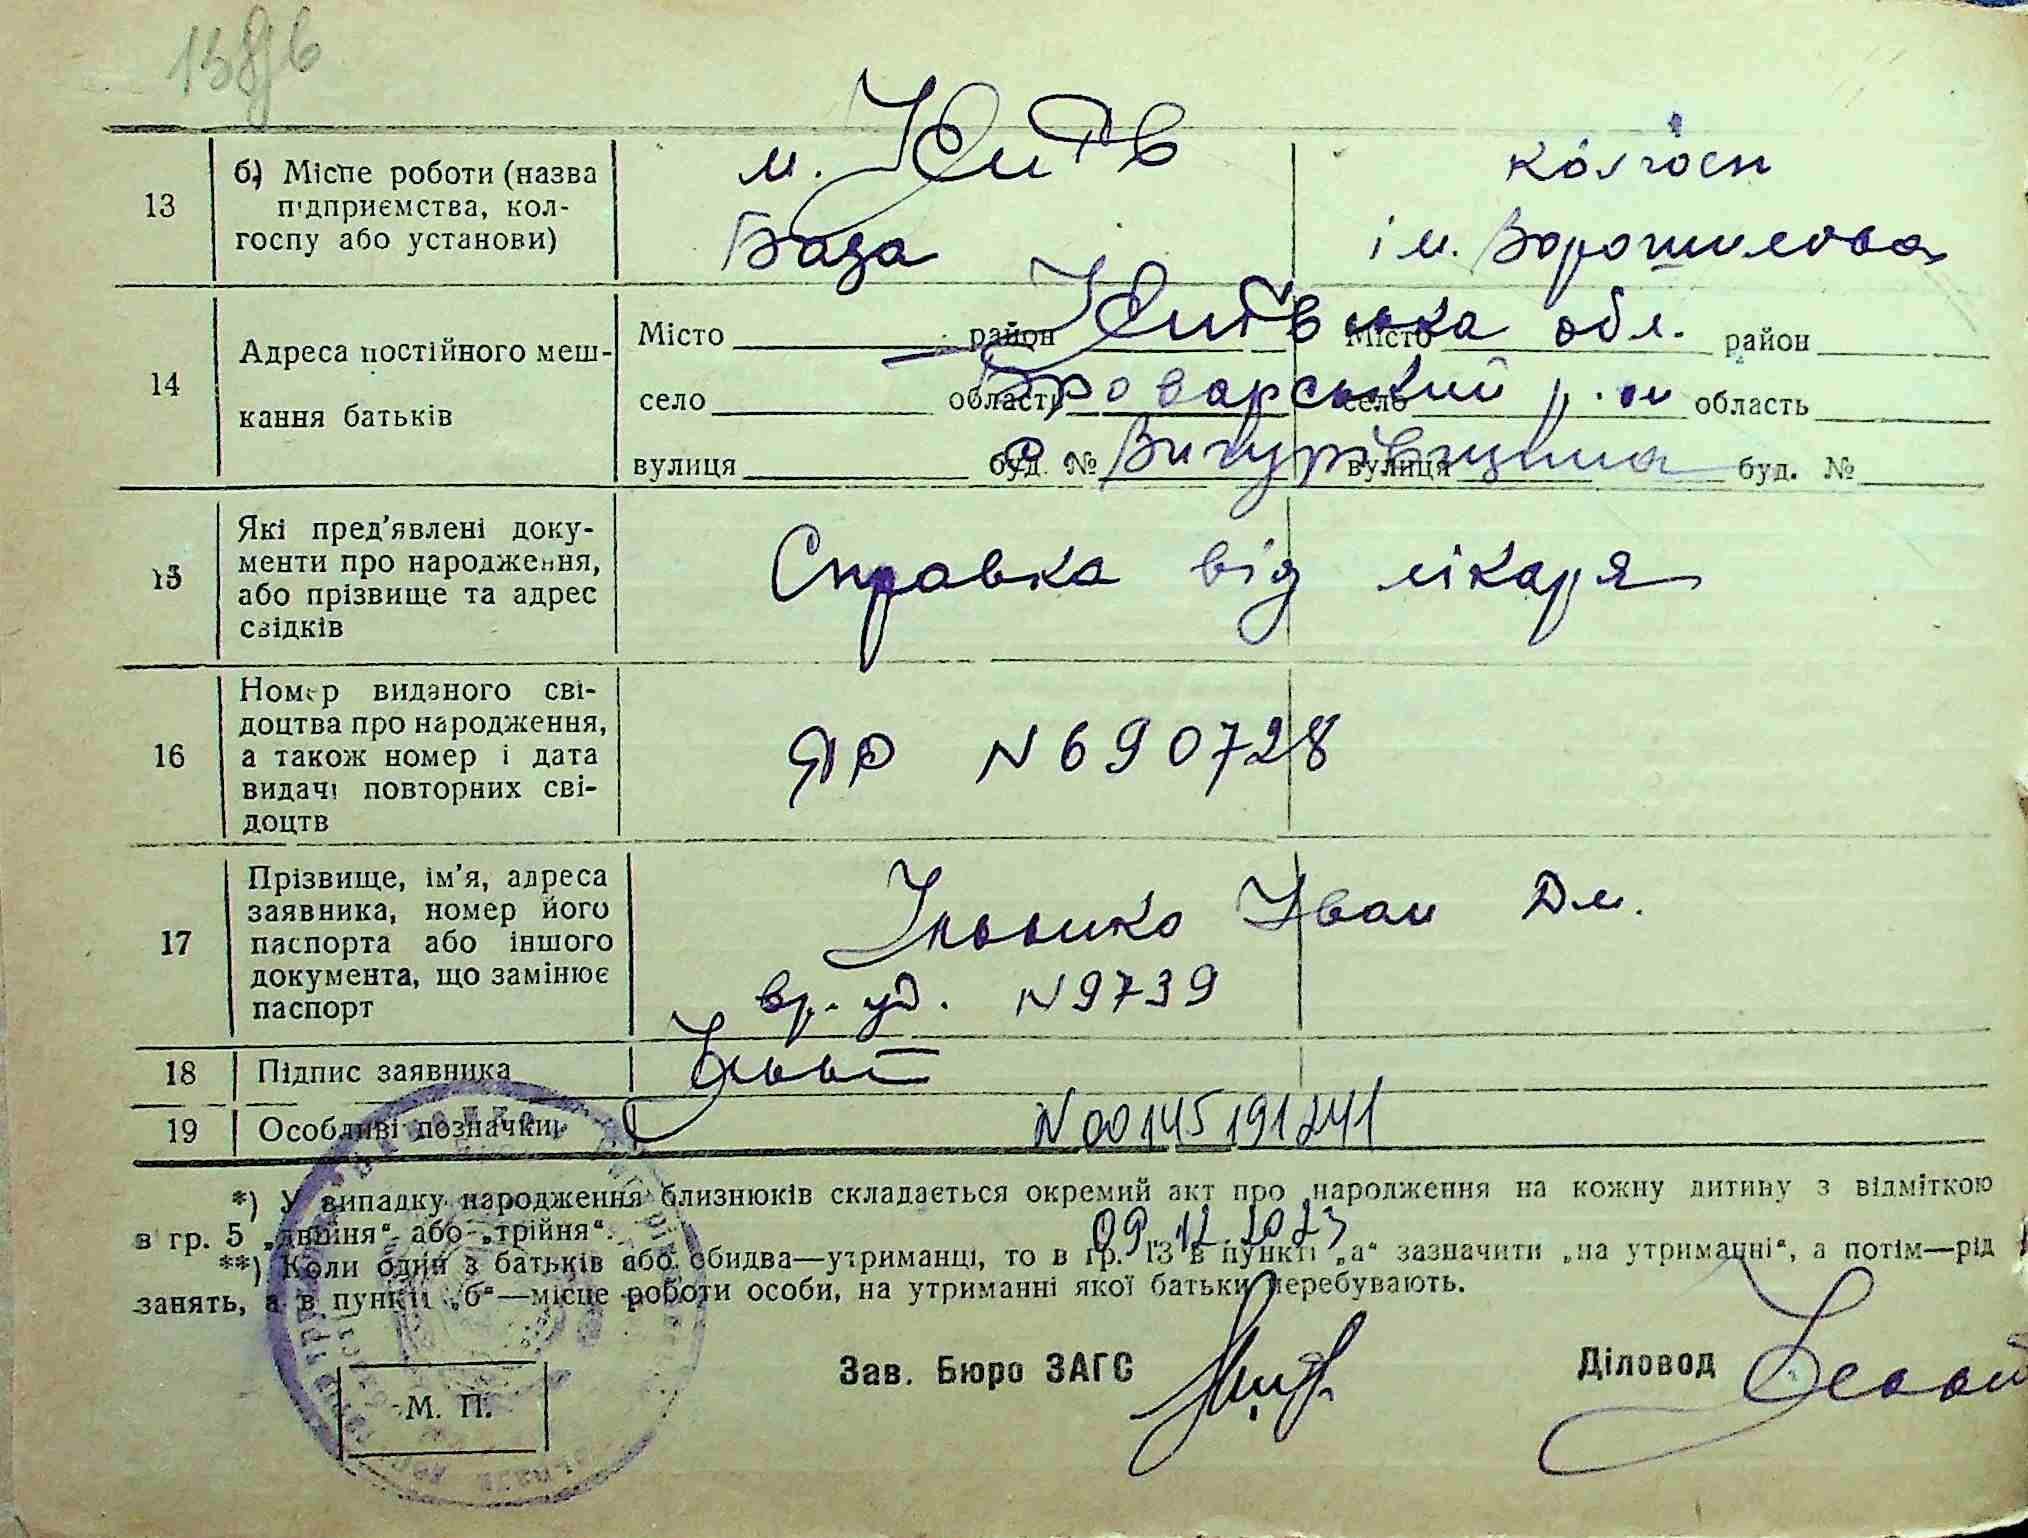 13 б) Місце роботи (назва підприємства, колгоспу або установи) м. Київ колгосп
База ім. Ворошилова
14 Адреса постійного мешкання батьків
Місто район Місто район
село область село область
вулиця буд. № вулиця буд. №
Київська обл.
Броварський р-н
с. Вигурівщина
15 Які пред'явлені документи про народження, або прізвище та адрес свідків
Справка від лікаря
16 Номер виданого свідоцтва про народження, а також номер і дата видачі повторних свідоцтв
ЯР N 690728
17 Прізвище, ім'я, адреса заявника, номер його паспорта або іншого документа, що замінює паспорт
Ільєнко Іван Дм.
вр. уд. N 9739
18 Підпис заявника
19 Особливі позначки N00145191241
*) У випадку народження близнюків складається окремий акт про народження на кожну дитину з відміткою
в гр. 5 „двійня“ або „трійня“.
09.12.2023
**) Коли один з батьків або обидва—утриманці, то в гр. 13 в пункті „а“ зазначити „на утриманні“, а потім—рід
занять, а в пункті „б“—місце роботи особи, на утриманні якої батьки перебувають.
Зав. Бюро ЗАГС Діловод
М. П.